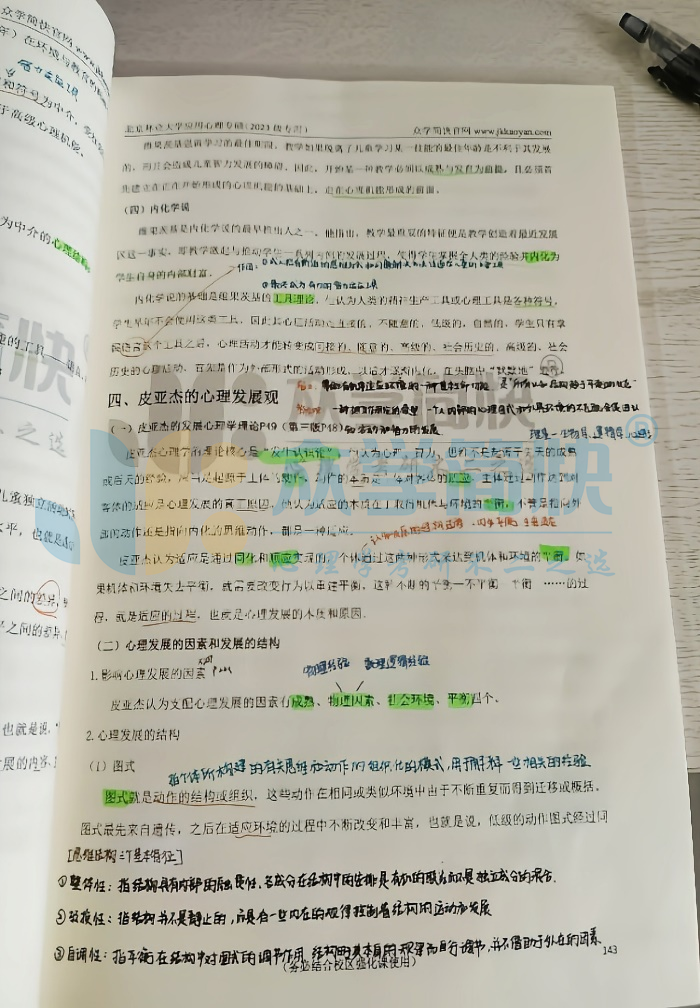 众学简快官网 www.jk
年）在环境与教育的
和符号为中介，受
于高级心理机能。
为中介的心理结
的工具——
也就是
之间的差异，
之间的差异
也就是说，
展的内容
北京师范大学应用心理专硕（2023级专用） 众学简快官网 www.jkkaoyan.com
维果茨基强调学习的最佳期限，教学如果脱离了儿童学习某一技能的最佳年龄是不利于其发展
的，则会造成儿童智力发展的障碍。因此，开始某一种教学必须以成熟与发育为前提，且必须首
先建立在正在开始形成的心理机能的基础上，走在心理机能形成的前面。
（四）内化学说
维果茨基是内化学说的最早推出人之一。他指出，教学最重要的特征便是教学创造着最近发展
区这一事实，即教学激起与推动学生一系列内部的发展过程，使得学生掌握全人类的经验并内化为
学生自身的内部财富。
内化学说的基础是维果茨基的工具理论，他认为人类的精神生产工具或心理工具是各种符号。
学生早年不会使用这类工具，因此其心理活动是直接的、不随意的、低级的、自然的，学生只有掌
握语言这个工具之后，心理活动才能转变成间接的、随意的、高级的、社会历史的。高级的、社会
历史的心理活动，首先是作为外部形式的活动形成，以后才逐渐内化，在头脑中“默默地”进行。
四、皮亚杰的心理发展观
（一）皮亚杰的发展心理学理论P49（第三版P18）
皮亚杰心理学的理论核心是“发生认识论”，他认为心理、智力、思维不是起源于先天的成熟
或后天的经验，而是起源于主体的动作。动作的本质是主体对客体的适应。主体通过动作达到对
客体的适应是心理发展的真正原因。他认为适应的本质在于取得机体与环境的平衡，不管是指向外
部的动作还是指向内化的思维动作，都是一种适应。
皮亚杰认为适应是通过同化和顺应实现的，个体通过这两种形式来达到机体和环境的平衡。如
果机体和环境失去平衡，就需要改变行为以重建平衡。这种不断的平衡—不平衡—平衡……的过
程，就是适应的过程，也就是心理发展的本质和原因。
（二）心理发展的因素和发展的结构
1.影响心理发展的因素
物理经验 数理逻辑经验
皮亚杰认为支配心理发展的因素有成熟、物理因素、社会环境、平衡四个。
2.心理发展的结构
（1）图式
指个体所构建的有关思维和动作的组织化的模式，用于解释一些相关的经验
图式就是动作的结构或组织，这些动作在相同或类似环境中由于不断重复而得到迁移或概括。
图式最先来自遗传，之后在适应环境的过程中不断改变和丰富，也就是说，低级的动作图式经过同
[思维结构三个基本特征]
①整体性：指结构具有内部的融贯性，各成分在结构中的安排是有机的联系而不是独立成分的混合。
②转换性：指结构并不是静止的，而是有一些内在的规律控制着结构的运动和发展
③自调性：指平衡在结构中对图式的调节作用，结构由其本身的规律而自行调节，并不借助于外在的因素
143
（务必结合校区强化课使用）
众学简快
心理学考研不二之选